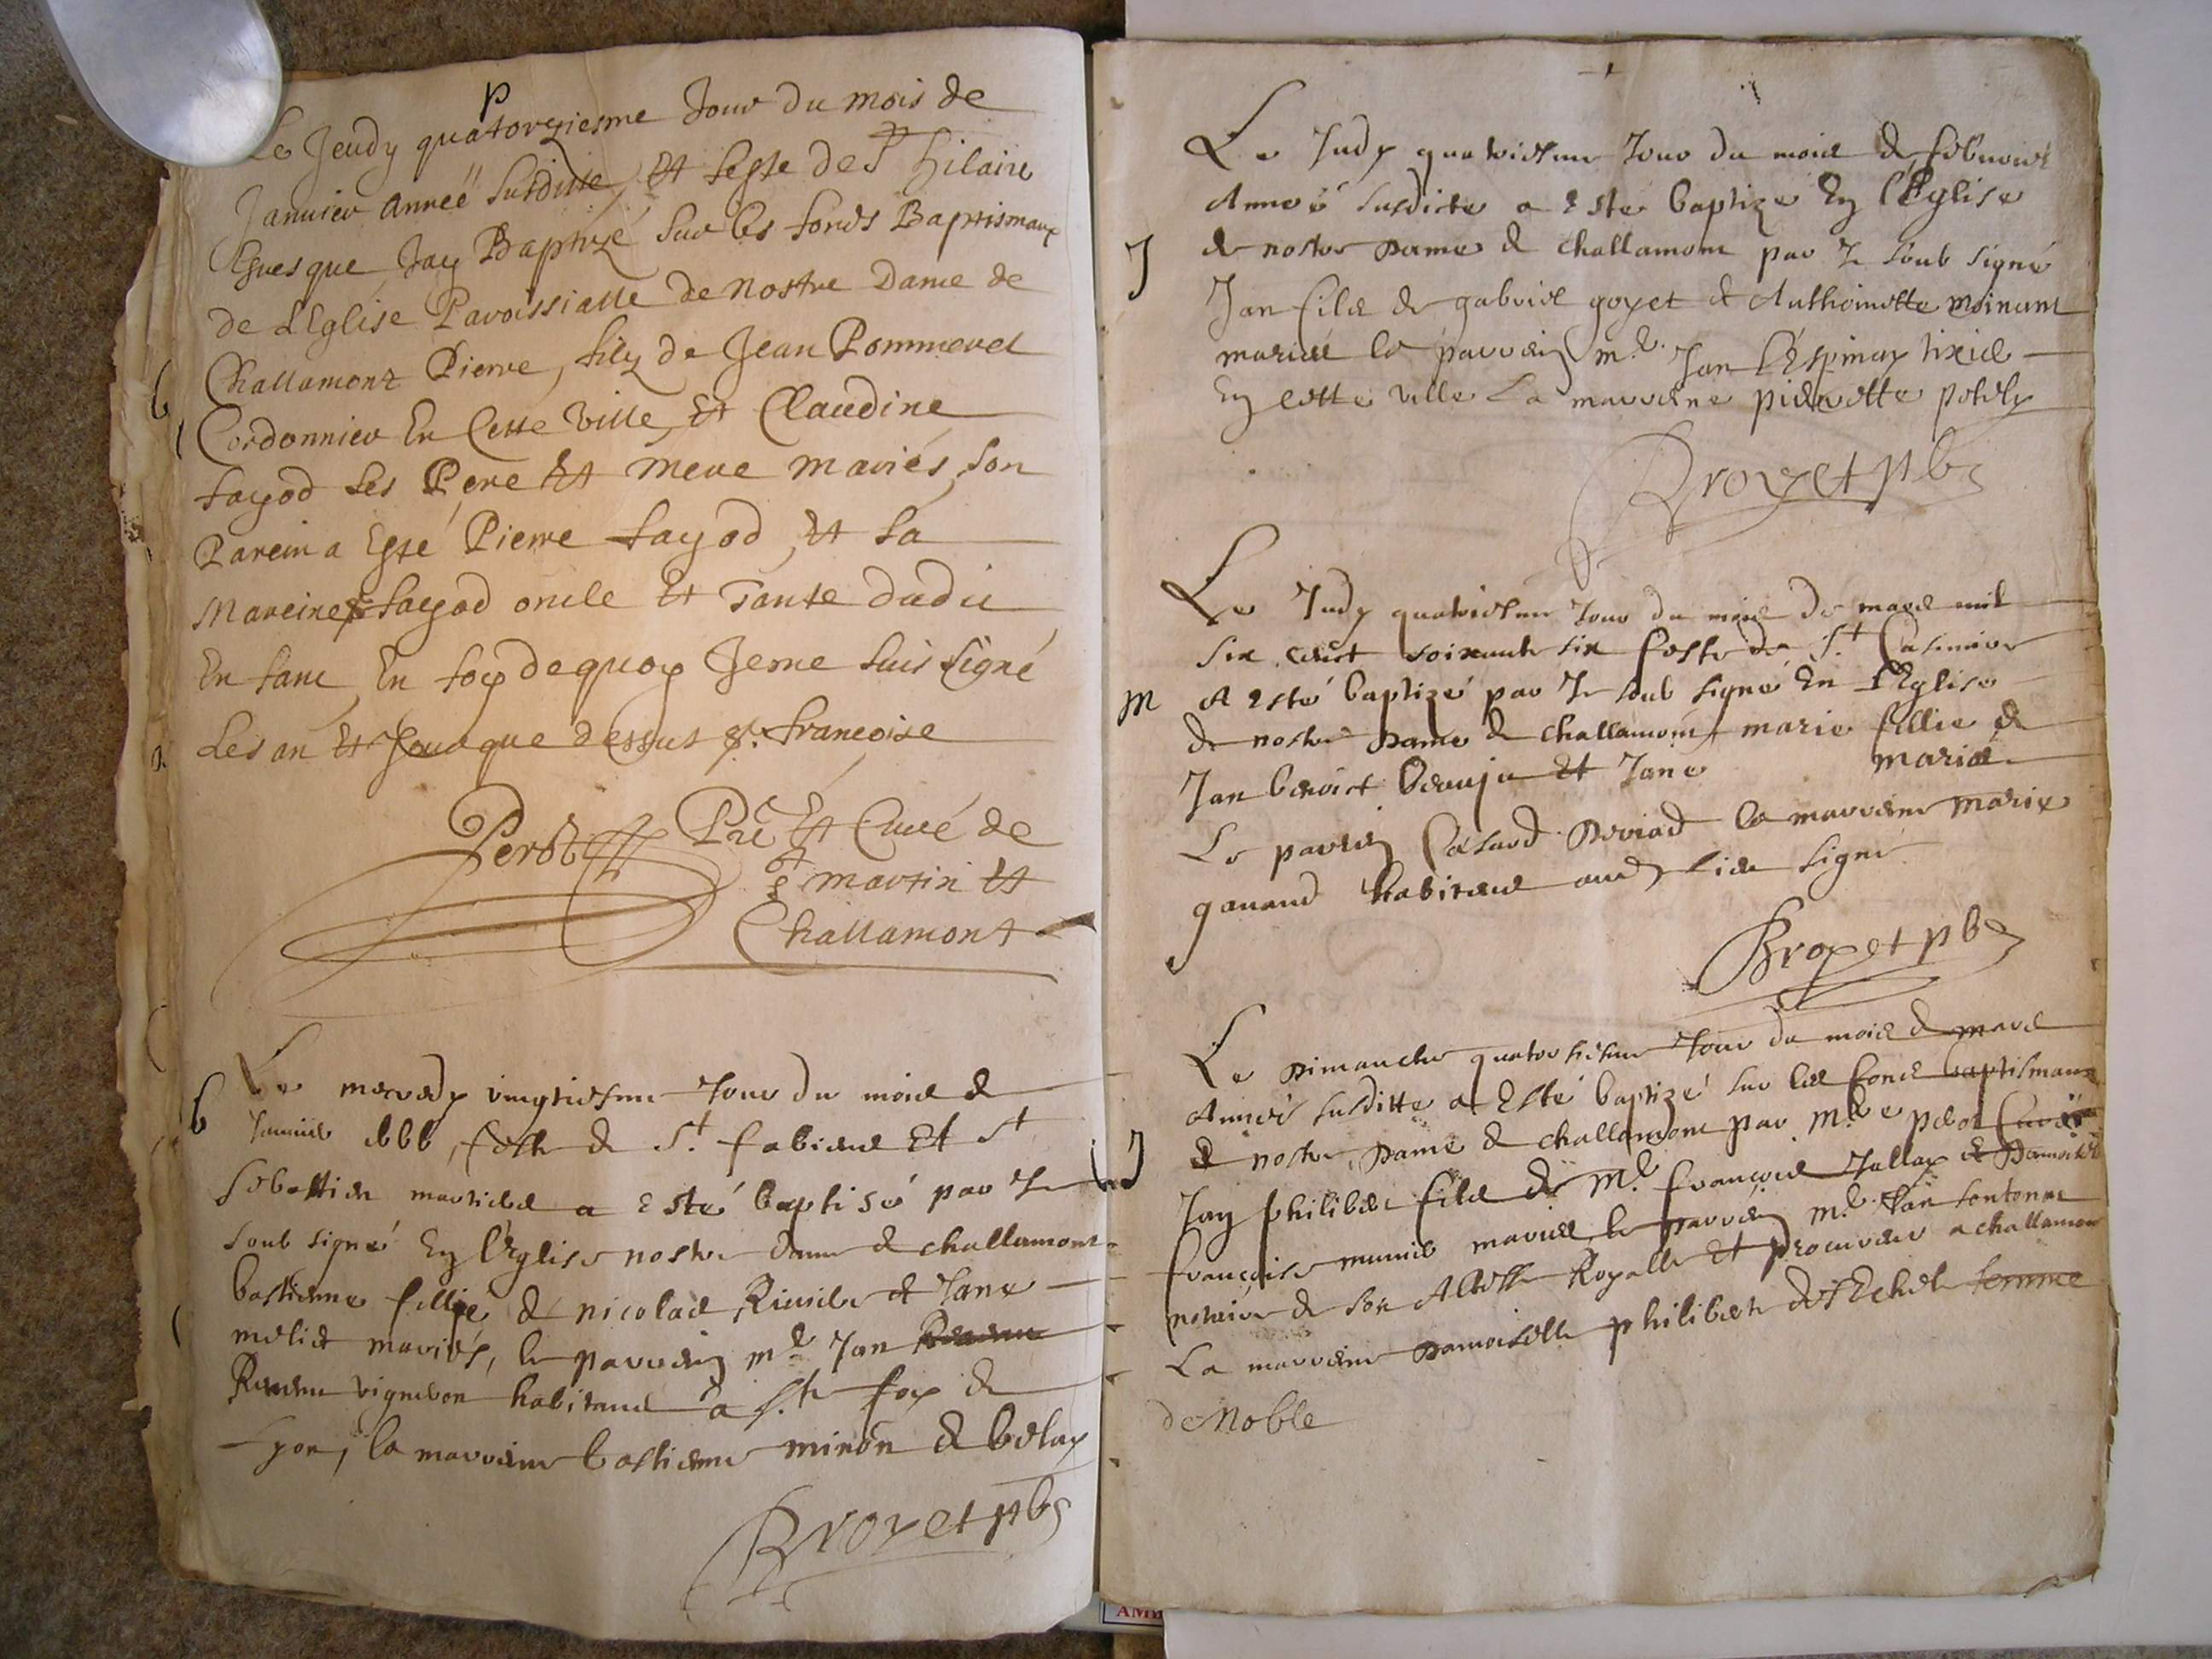 P
Le Jeudy quatorziesme Jour du mois de
Januier année susditte, et feste de St hilaire
Euesque Jay Baptizé sur les fonds Baptismaux
de L'Eglise Paroissialle de Nostre Dame de
Challamont Pierre, filz de Jean Pommerel
Cordonnier En Cette Ville, Et Claudine
fayod ses Pere Et Mere mariés, son
Parein a Esté Pierre fayod, et sa
Mareine fayod oncle Et Tante dudit
Enfant, En foy de quoy Je me suis signé
Les an Et Jour que dessus Françoise
Perot Pre Et Curé de
St martin Et
Challamont
b
Le mecredy vingtiesme Jour du mois de
Januier 666, feste de St fabiens Et St
sebastien martires a esté baptisé par Je
soub signé En l'Eglise nostre dame de challamont
bastienne fillie de nicolas et Jane
meliet mariés, le parrein me Jan
vigneron habitant a ste foy de
Lyon, la marreine bastienne minon de belay
Broyet pbr
Le Judy quatriesme Jour du mois de febvrier
Année susdicte a esté baptizé En l'Eglise
J
de nostre dame de challamont par Je soub signé
Jan fils de gabriel goyet et Anthoinette moinant
mariés le parrein me Jan l'Espinay tixier
En cette ville La marreine pierrette potely
Broyet pbr
Le Judy quatriesme Jour du mois de mars mil
six cent soixante six feste de St Casimire
M
A esté baptizé par Je soub signé En l'Eglise
de nostre dame de challamont marie fillie de
Jan benoict beaujeu Et Jane mariés
Le parrein Cesard la marreine marie
ganand habitans aud lieu signé
Broyet pbr
Le Dimanche quatorsiesme Jour du mois de mars
Année susditte a Esté baptizé sur les fons baptismaux
J
de nostre Dame de challamont par Mre perot Curé
Jan philibert fils de Me françois Jallay et Damoiselle
françoise munier mariés, le parrein me Jan
notaire de son Altesse Royalle Et procureur a challamont
La marreine Damoiselle philiberte femme
de Noble